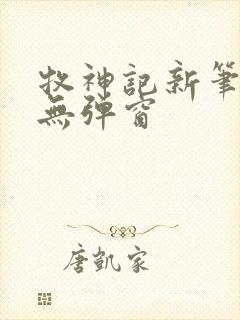 牧神記新筆
無彈窗
唐凱家